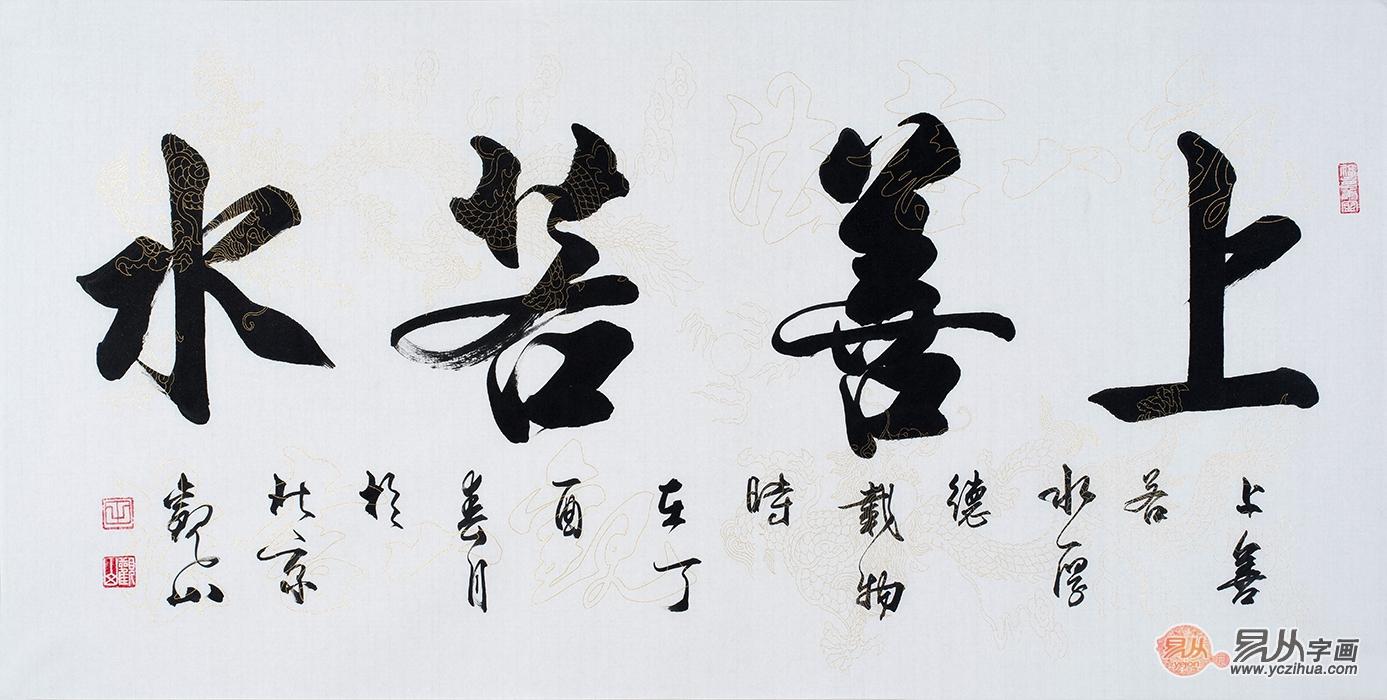 上善若水
上善
若
水厚
德
載物
時
在丁
酉
春月
於
北京
觀山
易从
易从字画
www.yczihua.com